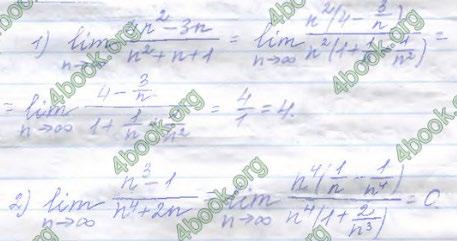 1) lim n→∞ (4n² - 3n)/(n² + n + 1) = lim n→∞ n²(4 - 3/n)/n²(1 + 1/n + 1/n²) =
= lim n→∞ (4 - 3/n)/(1 + 1/n + 1/n²) = 4/1 = 4.
2) lim n→∞ (n³ - 1)/(n⁴ + 2n) = lim n→∞ n⁴(1/n - 1/n⁴)/n⁴(1 + 2/n³) = 0.
4book.org
4book.org
4book.org
4book.org
4book.org
4book.org